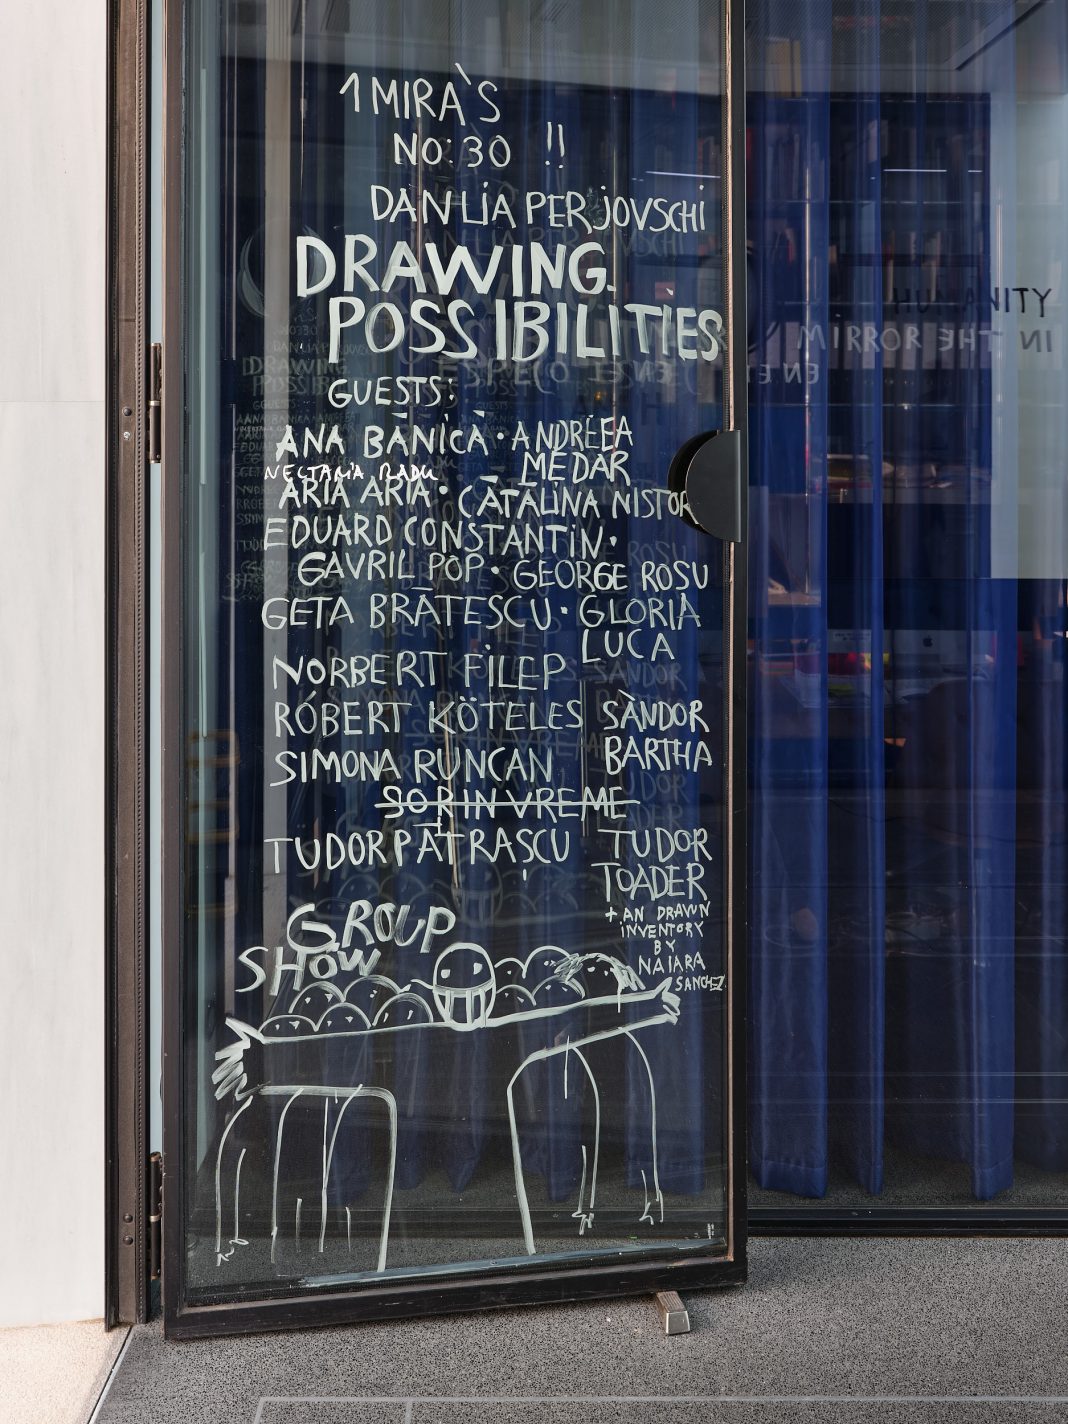 1 MIRA'S
NO: 30 !!
DAN LIA PERJOVSCHI
DRAWING.
POSSIBILITIES
GUESTS:
ANA BĂNICĂ • ANDREEA
MEDAR
NECTARIA RADU
ARIA ARIA • CĂTĂLINA NISTOR
EDUARD CONSTANTIN •
GAVRIL POP • GEORGE ROSU
GETA BRĂTESCU • GLORIA
LUCA
NORBERT FILEP
RÓBERT KÖTELES SÀNDOR
BARTHA
SIMONA RUNCAN
SORIN VREME
TUDOR PĂTRAȘCU TUDOR
TOADER
+ AN DRAWN
INVENTORY
BY
NAIARA
SANCHEZ
GROUP
SHOW
IN THE MIRROR